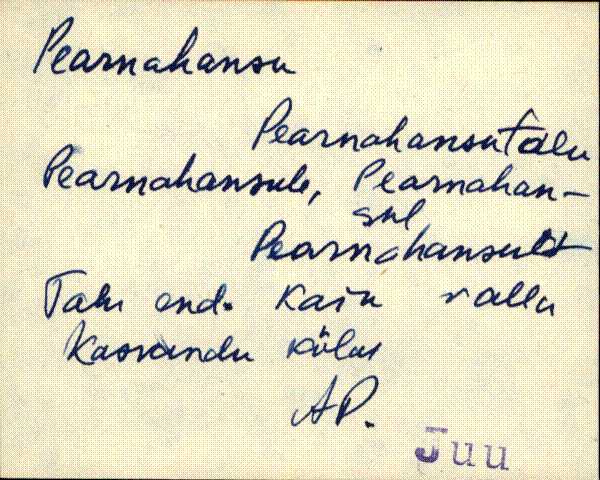 Pearnahansu
Pearnahansu talu
Pearnahansule, Pearnahan-
sul
Pearnahansult
Talu end. Kaiu valla
Kasvandu külas
AP.
Juu